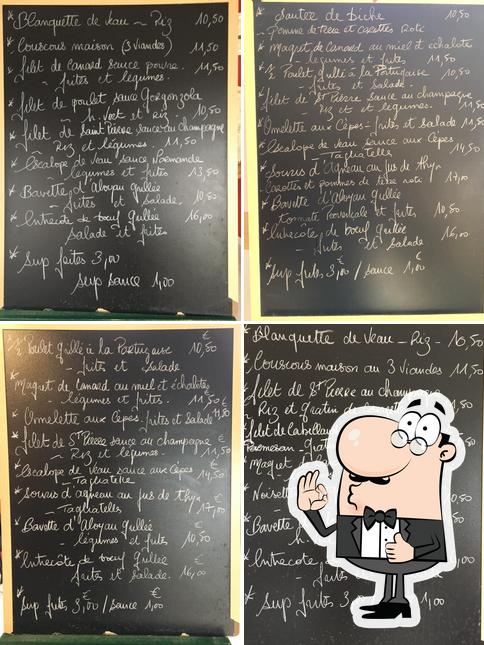 Blanquette de Veau - Riz 10,50
* Couscous maison (3 viandes) 11,50
* filet de Canard sauce poivre. 11,50
- frites et légumes.
* filet de poulet sauce Gorgonzola
- h. Vert et Riz. 10,50
* filet de Saint Pierre sauce au Champagne
- Riz et légumes. 11,50
* Escalope de Veau sauce Normande
- légumes et frites 13,50
* Bavette d'Aloyau Grillée
- frites et Salade. 10,50
* Entrecôte de bœuf Grillée 16,00
Salade et frites
* Sup frites 3,00
Sup sauce 1,00
* Sautée de biche 10,50
- Pomme de terre et carottes Rôtie
* Magret de Canard au miel et échalote
- légumes et frites 11,50
* 1/2 Poulet Grillé à la Portugaise 10,50
- frites et Salade
* filet de St Pierre sauce au champagne
- Riz et et légumes. 11,50
Omelette aux Cèpes - frites et Salade 11,50
* Escalope de Veau sauce aux Cèpes
- Tagliatelles 14,50
* Souris d'Agneau au jus de thym
Carottes et pommes de terre roti 17,00
* Bavette d'Aloyau Grillée
tomate Provençale et frites 10,50
* Entrecôte de bœuf Grillée
frites et Salade 16,00
* Sup frites 3,00€ / sauce 1,00€
* 1/2 Poulet Grillé à la Portugaise €
frites et Salade 10,50
* Magret de Canard au miel et échalotes
- légumes et frites. 11,50€
* Omelette aux Cèpes - frites et Salade 11,50
* filet de St Pierre sauce au champagne €
- Riz et légumes. 11,50
* Escalope de Veau sauce aux Cèpes €
- Tagliatelle 14,50
* Souris d'agneau au jus de thym €
- Tagliatelles 17,00
* Bavette d'Aloyau Grillée €
- légumes et frites 10,50
* Entrecôte de bœuf Grillée €
frites et Salade. 16,00
* Sup frites 3,00€ / sauce 1,00€
* Blanquette de Veau - Riz - 10,50
* Couscous maison au 3 Viandes 11,50
* filet de St Pierre au champagne
- Riz et Gratin
filet de Cabillaud
Parmesan - grat
* Magret
* Noisett
* Bavette
* Entrecote
- frites
* Sup frites 3 1,00